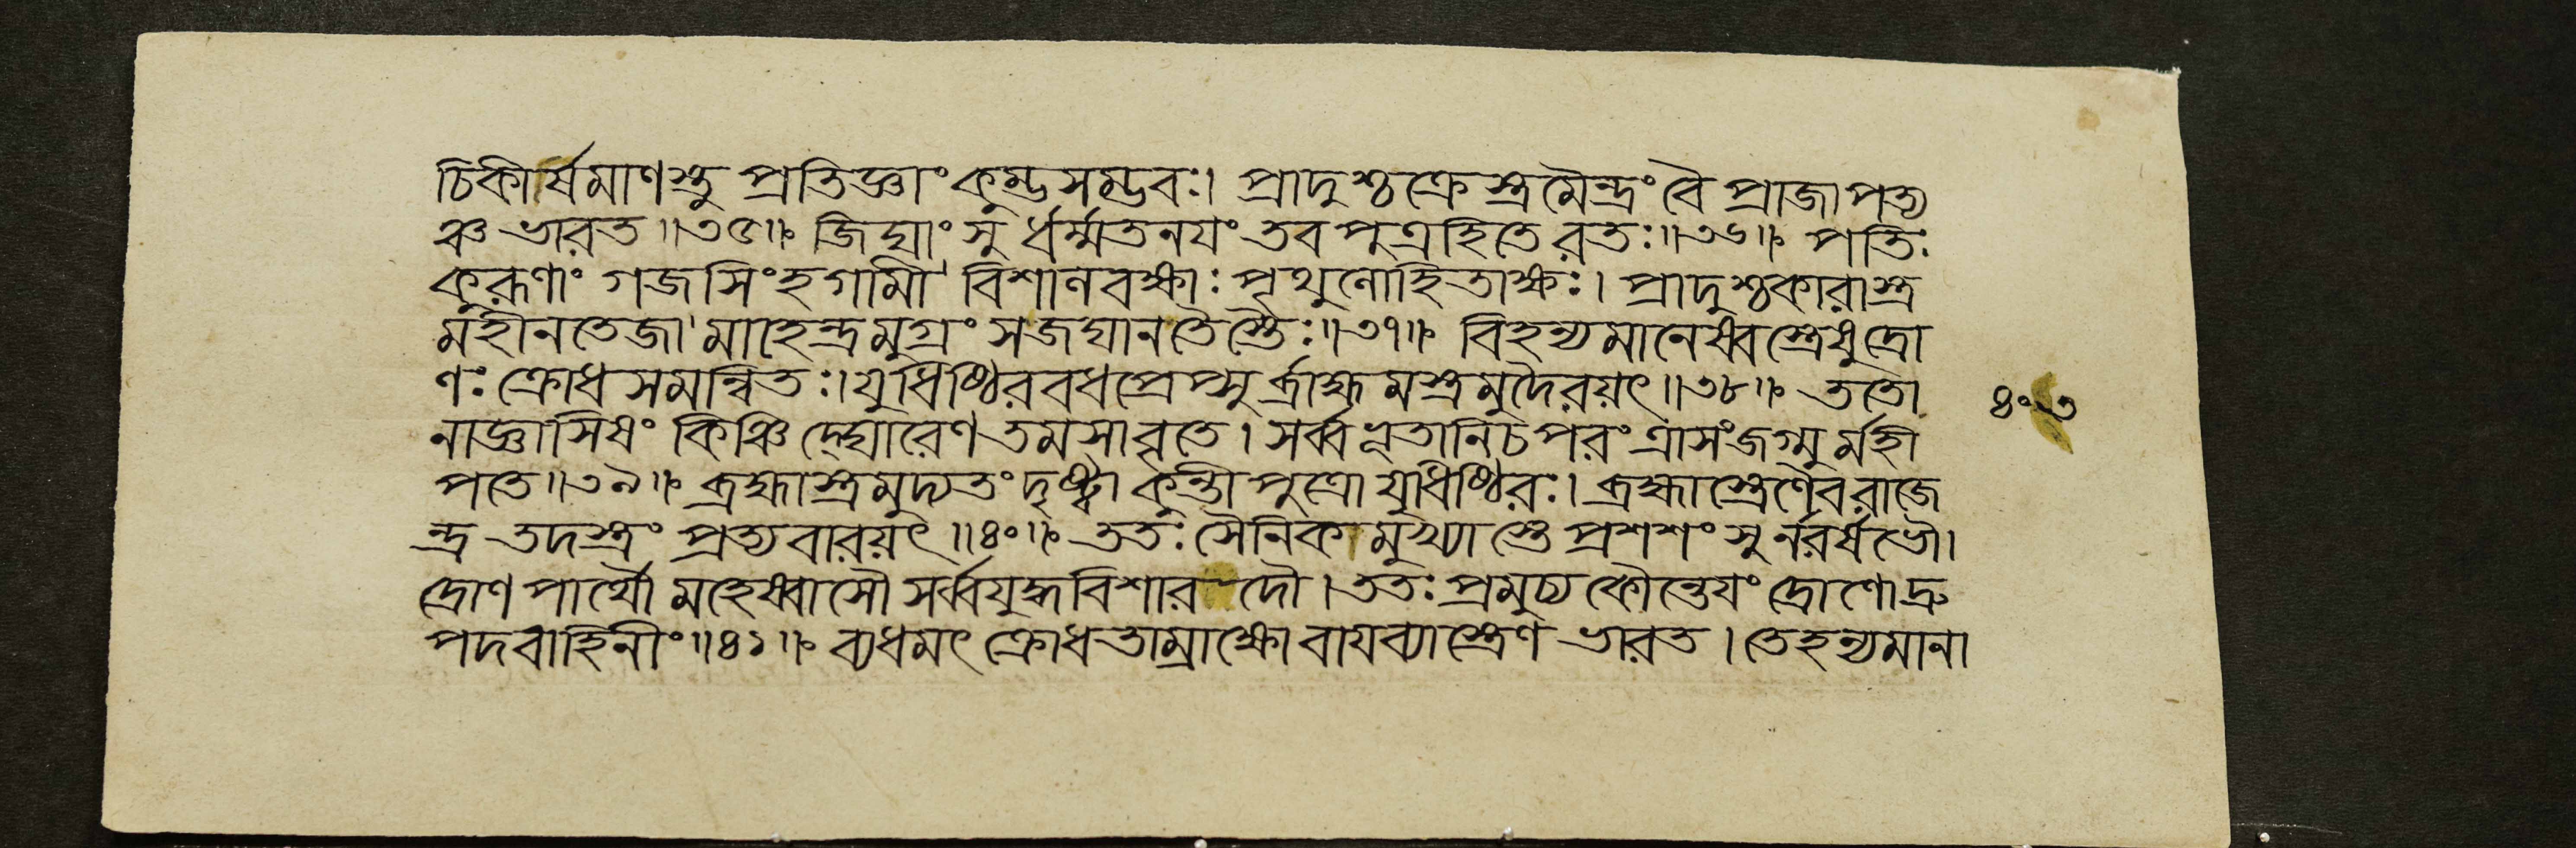 চিকীর্ষমাণস্তু প্রতিজ্ঞাং কুম্ভসম্ভবঃ। প্রাদুশ্চক্রেস্ত্রমৈন্দ্রং বৈ প্রাজাপত্য
ঞ্চ ভারত॥৩৫॥ জিঘাংসুর্ধর্ম্মতনযং তব পুত্রহিতে রতঃ॥৩৬॥ পতিঃ
কুরূণাং গজসিংহগামী বিশালবক্ষাঃ পৃথুলোহিতাক্ষঃ। প্রাদুশ্চকারাস্ত্র
মহীনতেজা মাহেন্দ্রমুগ্রং সজঘানতৈস্তৈঃ॥৩৭॥ বিহন্যমানেষ্বস্ত্রেষুদ্রো
ণঃ ক্রোধসমন্বিতঃ। যুধিষ্ঠিরবধপ্রেপ্সুর্ব্রাহ্মমস্ত্রমুদৈরয়ৎ॥৩৮॥ ততো
নাজ্ঞাসিষং কিঞ্চিদ্ঘোরেণতমসাবৃতে। সর্ব্বভূতানিচপরং ত্রাসংজগ্মুর্মহী
পতে॥৩৯॥ ব্রহ্মাস্ত্রমুদ্যতং দৃষ্ট্বা কুন্তীপুত্রো যুধিষ্ঠিরঃ। ব্রহ্মাস্ত্রেণৈবরাজে
ন্দ্র তদস্ত্রং প্রত্যবারয়ৎ॥৪০॥ ততঃ সৈনিকামুখ্যাস্তে প্রশশংসুর্নরর্ষভৌ।
দ্রোণপার্থৌ মহেষ্বাসৌ সর্ব্বযুদ্ধবিশারদৌ। ততঃ প্রমুচ্য কৌন্তেযং দ্রোণোদ্রু
পদবাহিনীং॥৪১॥ ব্যধমৎ ক্রোধতাম্রাক্ষো বাযব্যাস্ত্রেণ ভারত। তেহন্যমানা
৪০৩